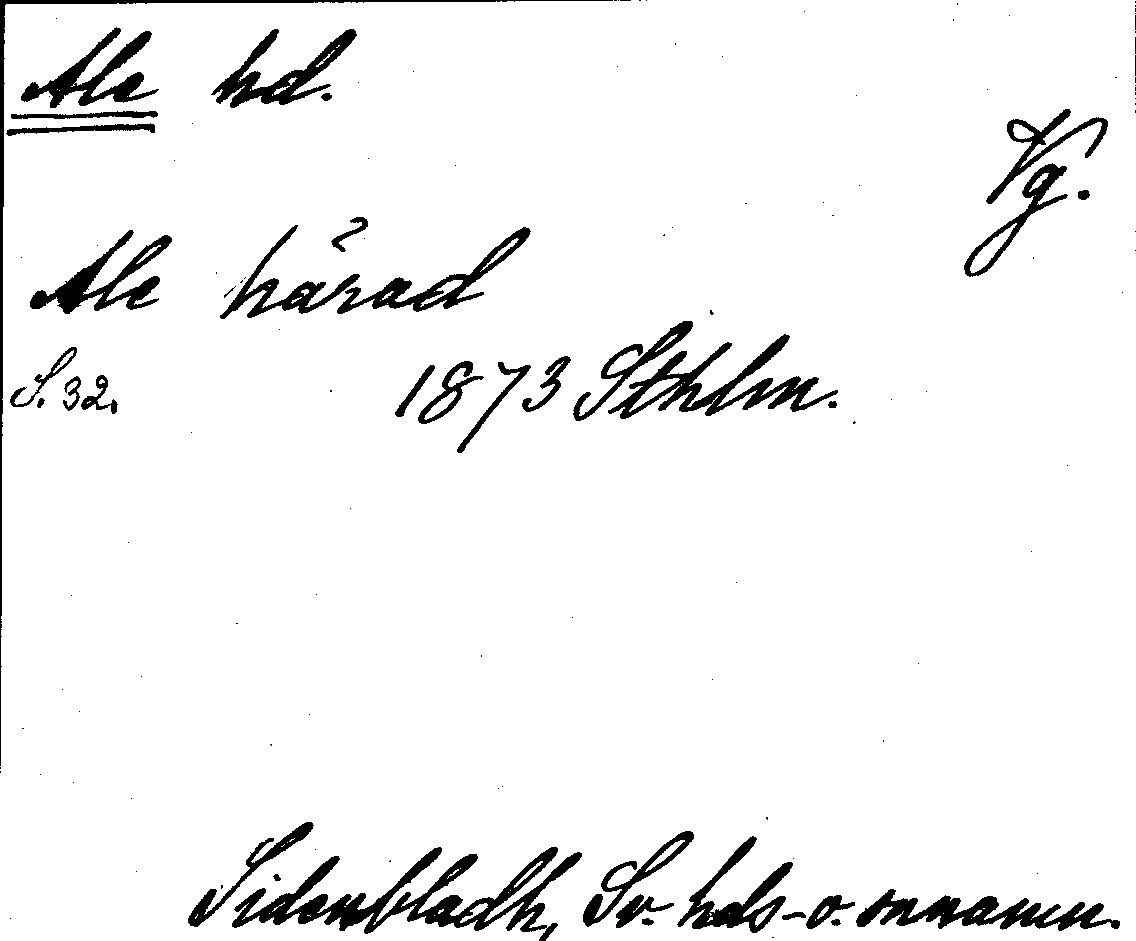 Ale hd.
Vg.
Ale härad
S. 32. 1873 Sthlm.
Sidenbladh, Sv. hds- o. snnamn.